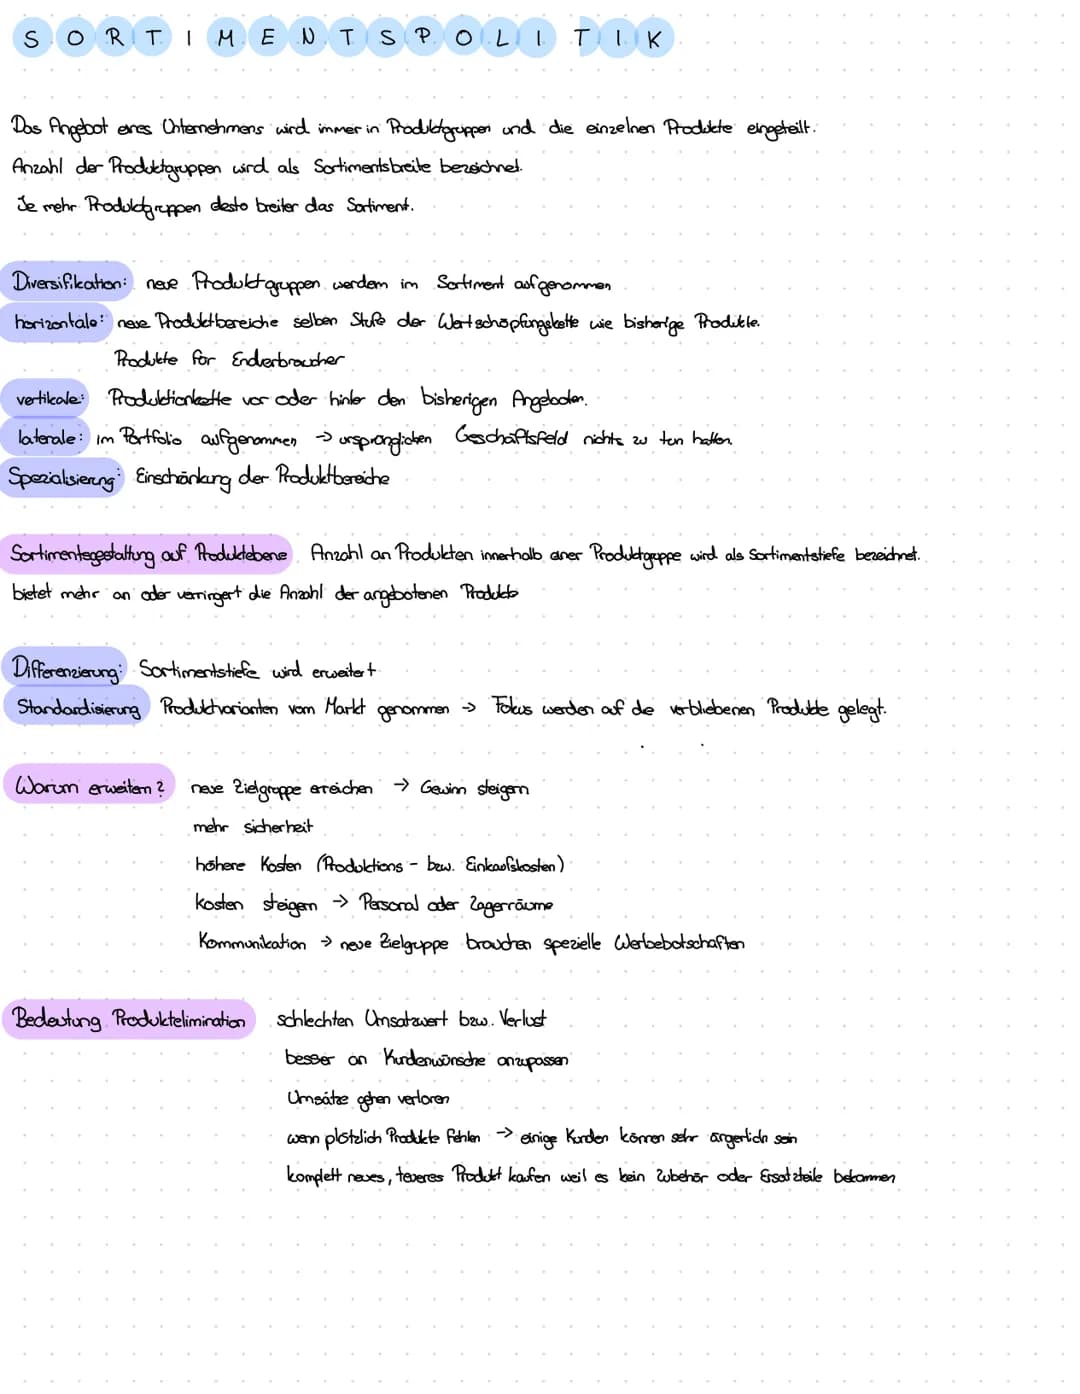 SORTIMENTSPOLITIK
Das Angebot eines Unternehmens wird immer in Produktgruppen und die einzelnen Produkte eingeteilt.
Anzahl der Produktgruppen wird als Sortimentsbreite bezeichnet.
Je mehr Produktgruppen desto breiter das Sortiment.
Diversifikation: neue Produktgruppen werden im Sortiment aufgenommen
horizontale: neue Produktbereiche selben Stufe der Wertschöpfungskette wie bisherige Produkte.
Produkte für Endverbraucher
vertikale: Produktionkette vor oder hinter den bisherigen Angeboten.
laterale: im Portfolio aufgenommen → ursprünglichen Geschäftsfeld nichts zu tun hatten.
Spezialisierung: Einschränkung der Produktbereiche
Sortimentsgestaltung auf Produktebene Anzahl an Produkten innerhalb einer Produktgruppe wird als Sortimentstiefe bezeichnet.
bietet mehr an oder verringert die Anzahl der angebotenen Produkte
Differenzierung: Sortimentstiefe wird erweitert
Standardisierung Produktvarianten vom Markt genommen → Fokus werden auf die verbliebenen Produkte gelegt.
Warum erweitern? neue Zielgruppe erreichen → Gewinn steigern
mehr sicherheit
höhere Kosten (Produktions- bzw. Einkaufskosten)
kosten steigern → Personal oder Lagerräume
Kommunikation → neue Zielguppe brauchen spezielle Werbebotschaften
Bedeutung Produktelimination schlechten Umsatzwert bzw. Verlust
besser an Kundenwünsche anzupassen
Umsätze gehen verloren
wenn plötzlich Produkte fehlen → einige Kunden können sehr ärgerlich sein
komplett neues, teures Produkt kaufen weil es kein Zubehör oder Ersatzteile bekommen